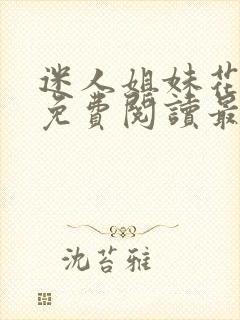 迷人姐妹花
免費閱讀最
沈苔雅